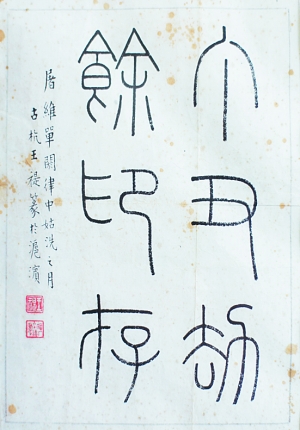 丁丑劫
餘印存
屠維單閼律中姑洗之月
古杭王禔篆於滬濱